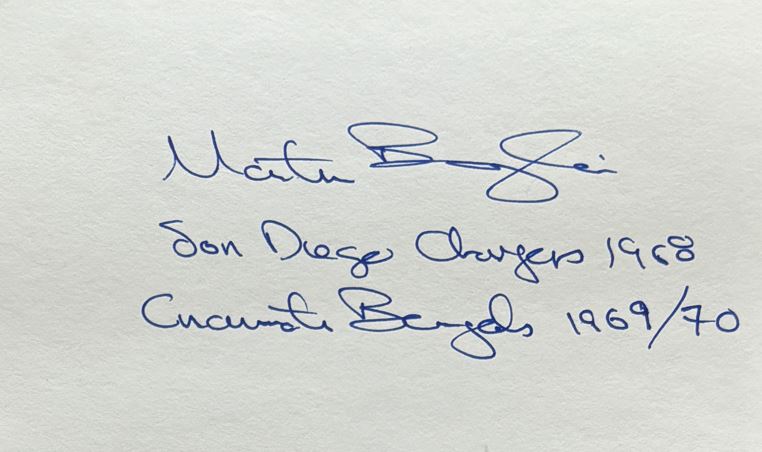 Martin B
San Diego Chargers 1968
Cincinnati Bengals 1969/70